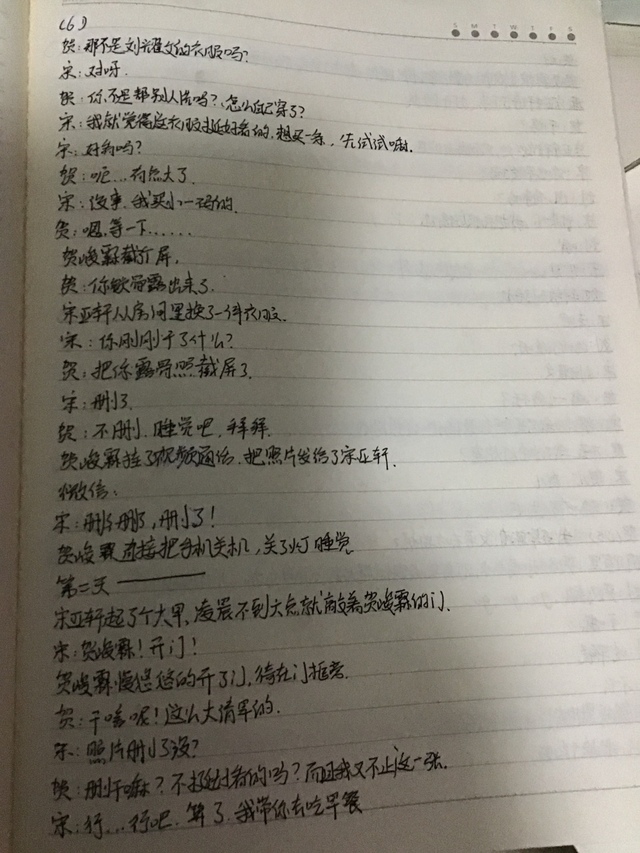 (6)
S M T W T F S
贺:那不是刘耀文的衣服吗?
宋:对呀.
贺:你不是帮别人洗吗?怎么自己穿了?
宋:我就觉得这衣服挺好看的.想买一条,先试试嘛.
宋:好看吗?
贺:呃...有点大了.
宋:没事.我买小一码的.
贺:嗯,等一下......
贺峻霖截了屏.
贺:你锁骨露出来了.
宋亚轩从房间里换了一件衣服.
宋:你刚刚干了什么?
贺:把你露骨照截屏了.
宋:删了.
贺:不删.睡觉吧.拜拜.
贺峻霖挂了视频通话.把照片发给了宋亚轩.
微信:
宋:删了删了,删了!
贺峻霖直接把手机关机,关了灯睡觉
第二天 ————
宋亚轩起了个大早,凌晨不到六点就敲着贺峻霖的门.
宋:贺峻霖!开门!
贺峻霖慢悠悠的开了门,倚在门框旁.
贺:干啥呢!这么大清早的.
宋:照片删了没?
贺:删干嘛?不挺好看的吗?而且我又不止这一张.
宋:行...行吧.算了.我带你去吃早餐